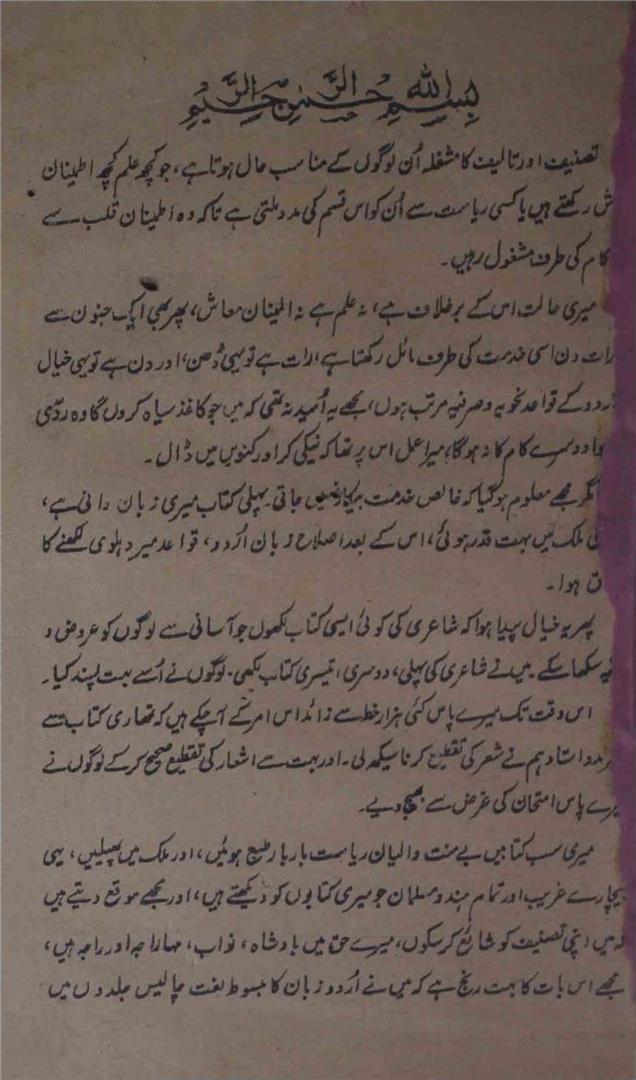 بسم الله الرحمن الرحيم
تصنیف اور تالیف کا مشغلہ اُن لوگوں کے مناسب حال ہوتا ہے، جو کچھ علم کچھ اطمینان
ش رکھتے ہیں یا کسی ریاست سے اُن کو اس قسم کی مدد ملتی ہے تاکہ وہ اطمینان قلب سے
کام کی طرف مشغول رہیں۔
میری حالت اس کے برخلاف ہے، نہ علم ہے نہ اطمینان معاش، پھر بھی ایک جنون سے
رات دن اسی خدمت کی طرف مائل رکھتا ہے، رات ہے تو یہی دُھن، اور دن ہے تو یہی خیال
اُردو کے قواعد نحویہ و صرفیہ مرتب ہوں، مجھے یہ اُمید نہ تھی کہ میں جو کاغذ سیاہ کروں گا وہ ردّی
دوسرے کام کا نہ ہو گا، میرا عمل اس پر تھا کہ نیکی کر اور کنویں میں ڈال۔
مگر مجھے معلوم ہو گیا کہ خالص خدمت بیکار نہیں جاتی۔ پہلی کتاب میری زبان دانی ہے،
کی ملک میں بہت قدر ہوئی، اس کے بعد اصلاح زبان اُردو، قواعد میر دہلوی لکھنے کا
ق ہوا۔
پھر یہ خیال پیدا ہوا کہ شاعری کی کوئی ایسی کتاب لکھوں جو آسانی سے لوگوں کو عروض و
یہ سکھا سکے۔ میں نے شاعری کی پہلی، دوسری، تیسری کتاب لکھی۔ لوگوں نے اُسے بہت پسند کیا۔
اس وقت تک میرے پاس کئی ہزار خط سے زائد اس امر کے آ چکے ہیں کہ تمھاری کتاب سے
استاد ہم نے شعر کی تقطیع کرنا سیکھ لی۔ اور بہت سے اشعار کی تقطیع صحیح کر کے لوگوں نے
میرے پاس امتحان کی غرض سے بھیج دیے۔
میری سب کتابیں بے منت والیان ریاست بار بار طبع ہوئیں، اور ملک میں پھیلیں، یہی
بیچارے غریب اور تمام ہندو مسلمان جو میری کتابوں کو دیکھتے ہیں، اور مجھے موقع دیتے ہیں
کہ میں اپنی تصنیف کو شائع کر سکوں، میرے حق میں بادشاہ، نواب، مہاراجہ اور راجہ ہیں،
مجھے اس بات کا بہت رنج ہے کہ میں نے اُردو زبان کا مبسوط لغت چالیس جلدوں میں